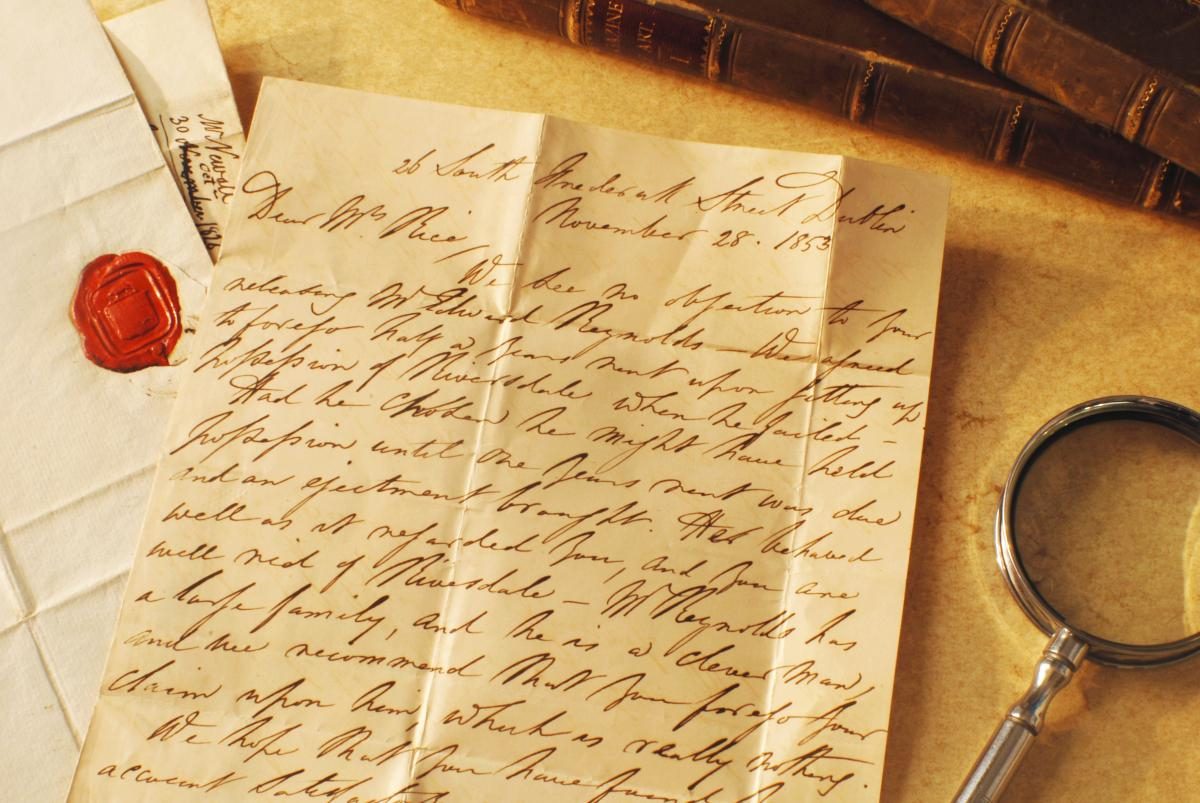 26 South Frederick Street Dublin
November 28. 1853
Dear Mrs Rice,
We see no objection to your
releasing Mr Edward Reynolds – We agreed
to forego half a years rent upon getting up
possession of Riversdale when he failed –
Had he chosen he might have held
possession until one years rent was due
and an ejectment brought. He behaved
well as it regarded you, and you are
well rid of Riversdale – Mr Reynolds has
a large family, and he is a clever man,
and we recommend that you forego your
claim upon him which is really nothing.
We hope that you have found
account
30
AZINE
ART.
I